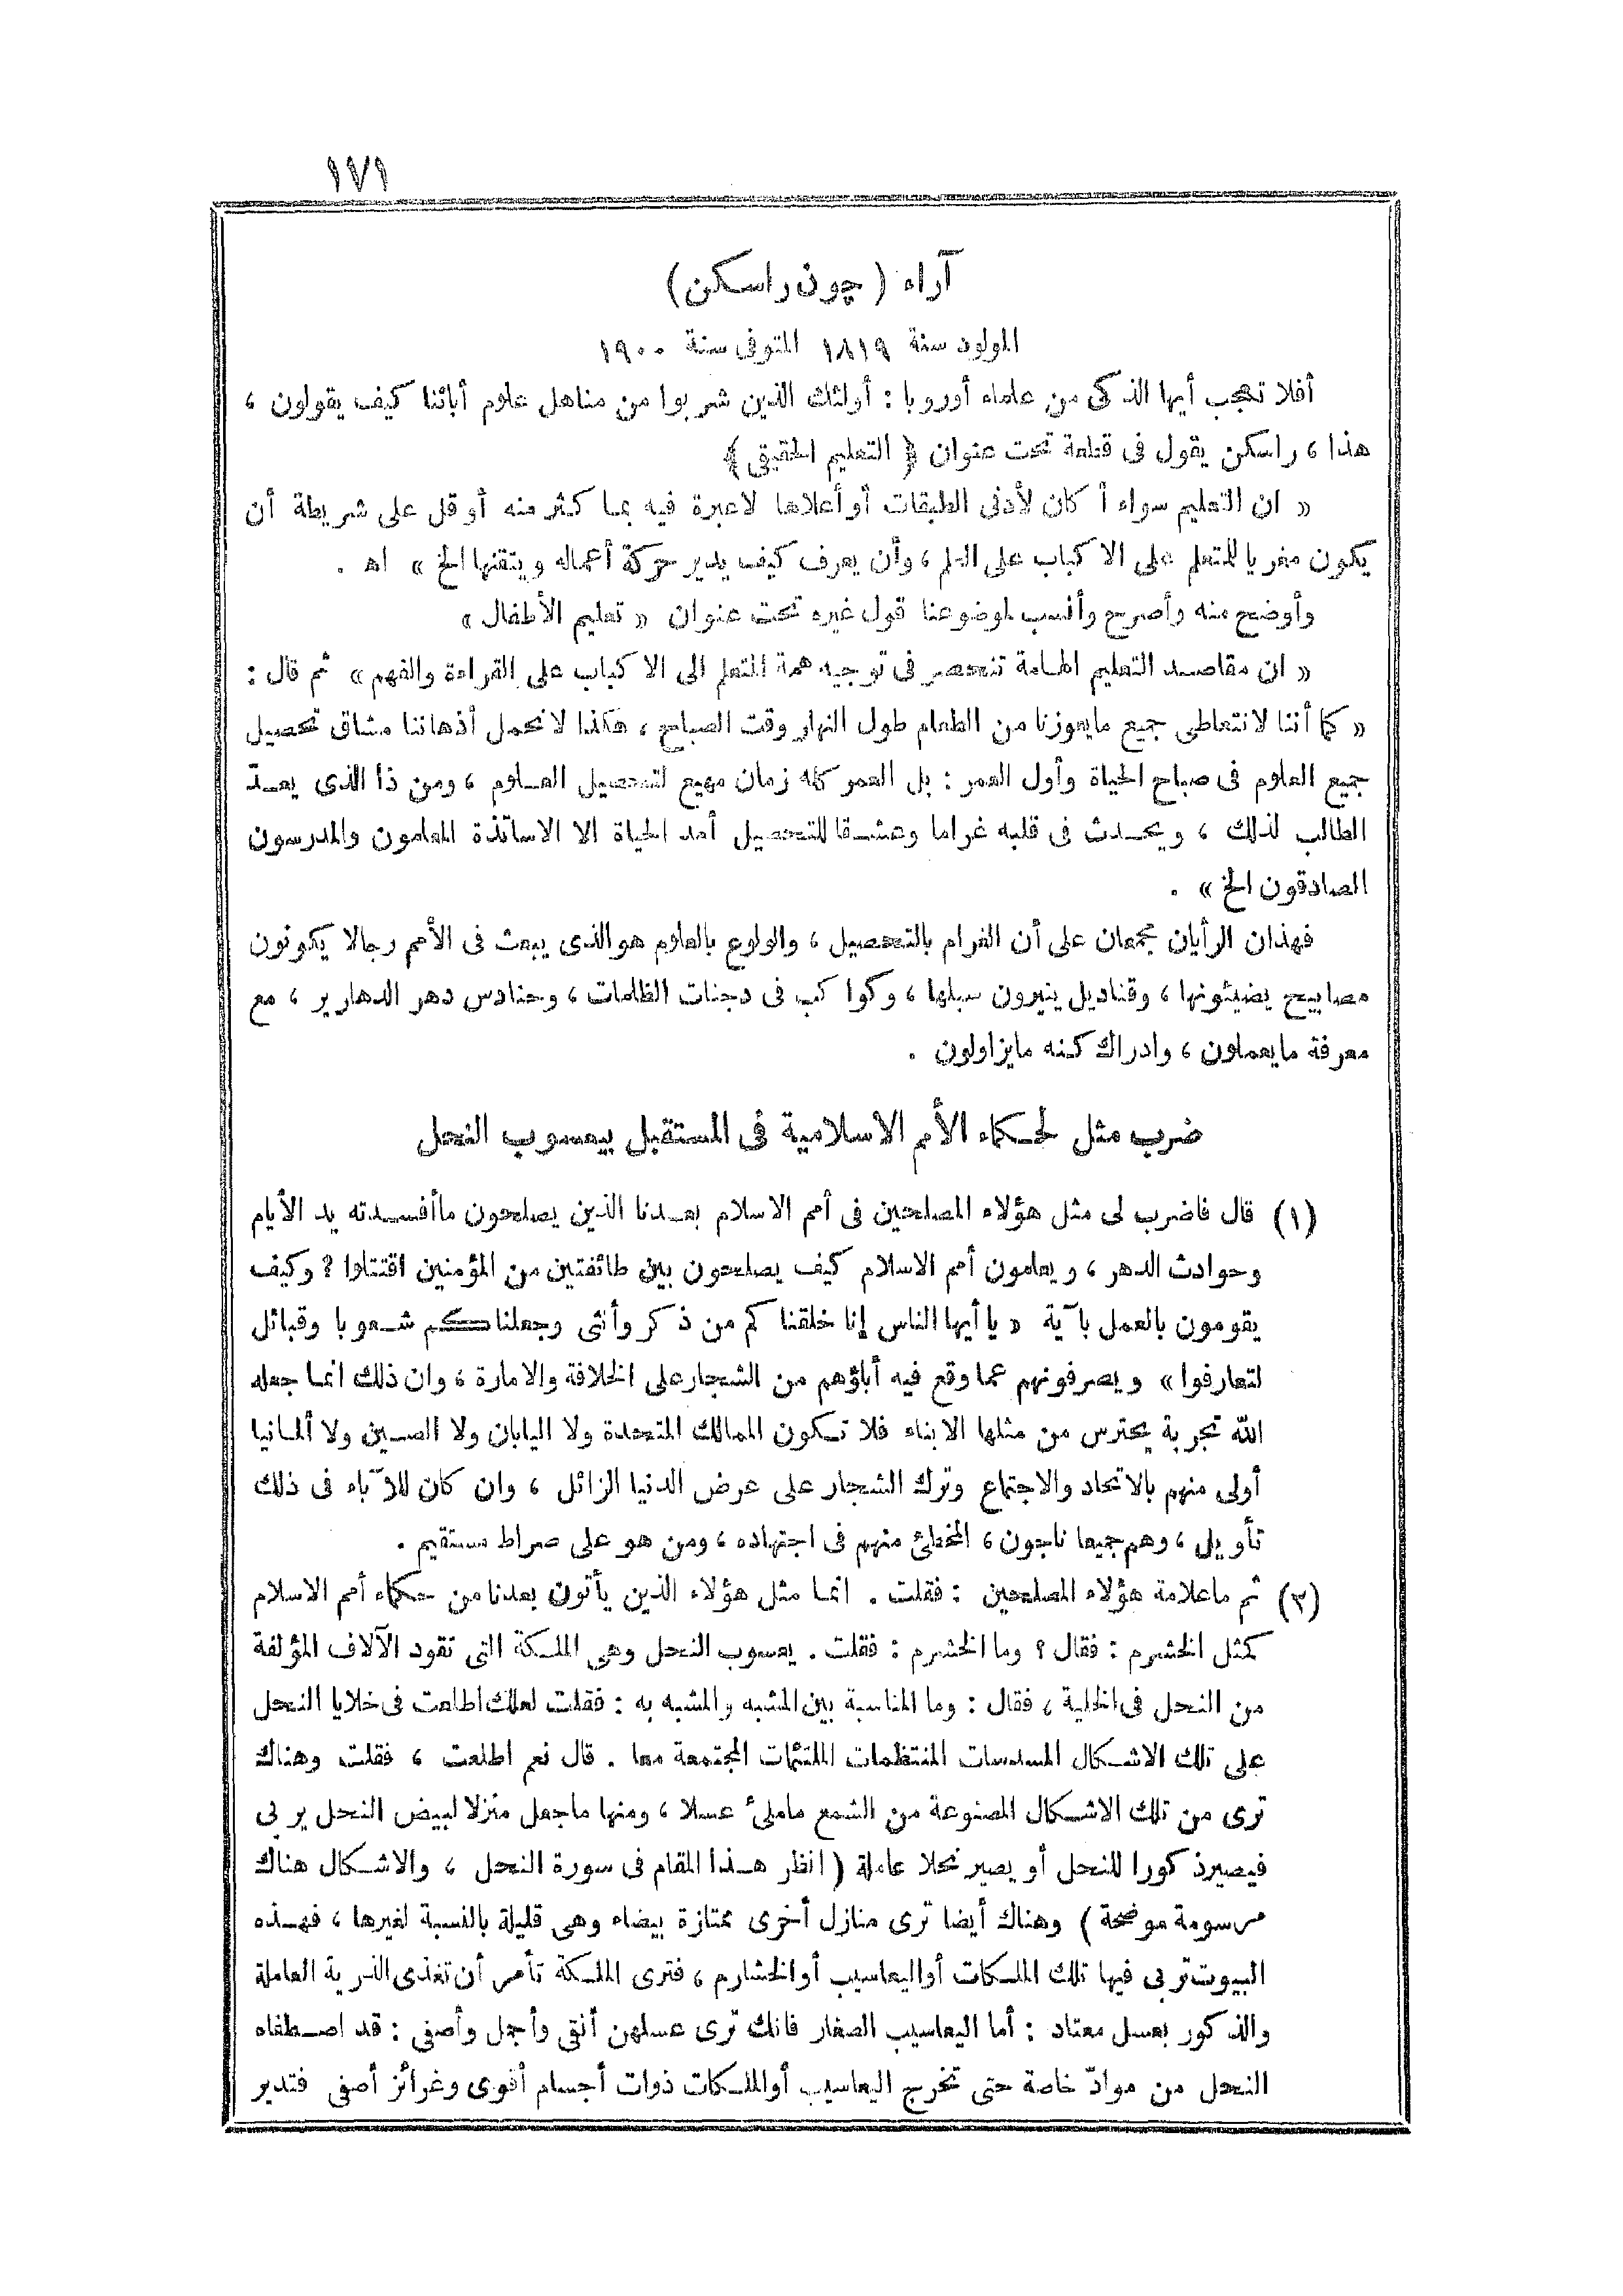 ١٧١
آراء ( چون راسكن )
المولود سنة ١٨١٩ المتوفى سنة ١٩٠٠
أفلا تعجب أيها الذكى من علماء أوروبا : أولئك الذين شربوا من مناهل علوم أبائنا كيف يقولون ،
هذا ، راسكن يقول فى قطعة تحت عنوان ﴿ التعليم الحقيقى ﴾
« ان التعليم سواء أ كان لأدنى الطبقات أو أعلاها لاعبرة فيه بما كثر منه أو قل على شريطة أن
يكون مغريا للمتعلم على الا كباب على العلم ، وأن يعرف كيف يدير حركة أعماله ويتقنها الخ » اه .
وأوضح منه وأصرح وأنسب لموضوعنا قول غيره تحت عنوان « تعليم الأطفال »
« ان مقاصد التعليم الهامة تنحصر فى توجيه همة المتعلم الى الا كباب على القراءة والفهم » ثم قال :
« كما أننا لانتعاطى جميع مايعوزنا من الطعام طول النهار وقت الصباح ، هكذا لانحمل أذهاننا مشاق تحصيل
جميع العلوم فى صباح الحياة وأول العمر : بل العمر كله زمان مهيع لتحصيل العلوم ، ومن ذا الذى يعدّ
الطالب لذلك ، ويحدث فى قلبه غراما وعشقا للتحصيل أمد الحياة الا الاساتذة المعلمون والمدرسون
الصادقون الخ » .
فهذان الرأيان مجمعان على أن الغرام بالتحصيل ، والولوع بالعلوم هو الذى يبعث فى الأمم رجالا يكونون
مصابيح يضيئونها ، وقناديل ينيرون سبلها ، وكوا كب فى دجنات الظلمات ، وحنادس دهر الدهارير ، مع
معرفة مايعملون ، وادراك كنه مايزاولون .
ضرب مثل لحكماء الأمم الاسلامية فى المستقبل بيعسوب النحل
(١) قال فاضرب لى مثل هؤلاء المصلحين فى أمم الاسلام بعدنا الذين يصلحون ماأفسدته يد الأيام
وحوادث الدهر ، ويعلمون أمم الاسلام كيف يصلحون بين طائفتين من المؤمنين اقتتلوا ? وكيف
يقومون بالعمل بآية « يا أيها الناس إنا خلقنا كم من ذكر وأنثى وجعلناكم شعوبا وقبائل
لتعارفوا » ويصرفونهم عما وقع فيه أباؤهم من الشجار على الخلافة والامارة ، وان ذلك انما جعله
الله تجربة يحترس من مثلها الابناء فلا تكون الممالك المتحدة ولا اليابان ولا الصين ولا ألمانيا
أولى منهم بالاتحاد والاجتماع وترك الشجار على عرض الدنيا الزائل ، وان كان للآباء فى ذلك
تأويل ، وهم جميعا ناجون ، المخطئ منهم فى اجتهاده ، ومن هو على صراط مستقيم .
(٢) ثم ماعلامة هؤلاء المصلحين : فقلت . انما مثل هؤلاء الذين يأتون بعدنا من حكماء أمم الاسلام
كمثل الخشرم : فقال ? وما الخشرم : فقلت . يعسوب النحل وهى الملكة التى تقود الآلاف المؤلفة
من النحل فى الخلية ، فقال : وما المناسبة بين المشبه والمشبه به : فقلت لعلك اطلعت فى خلايا النحل
على تلك الاشكال المسدسات المنتظمات الملتئمات المجتمعة معا . قال نعم اطلعت ، فقلت وهناك
ترى من تلك الاشكال المصنوعة من الشمع ماملئ عسلا ، ومنها ماجعل منزلا لبيض النحل يربى
فيصير ذكورا للنحل أو يصير نحلا عاملة ( انظر هذا المقام فى سورة النحل ، والاشكال هناك
مرسومة موضحة ) وهناك أيضا ترى منازل أخرى ممتازة بيضاء وهى قليلة بالنسبة لغيرها ، فهذه
البيوت تربى فيها تلك الملكات أو اليعاسيب أو الخشارم ، فترى الملكة تأمر أن تغذى الذرية العاملة
والذكور بعسل معتاد : أما اليعاسيب الصغار فانك ترى عسلهن أنقى وأجمل وأصفى : قد اصطفاه
النحل من موادّ خاصة حتى تخرج اليعاسيب أو الملكات ذوات أجسام أقوى وغرائز أصفى فتدير